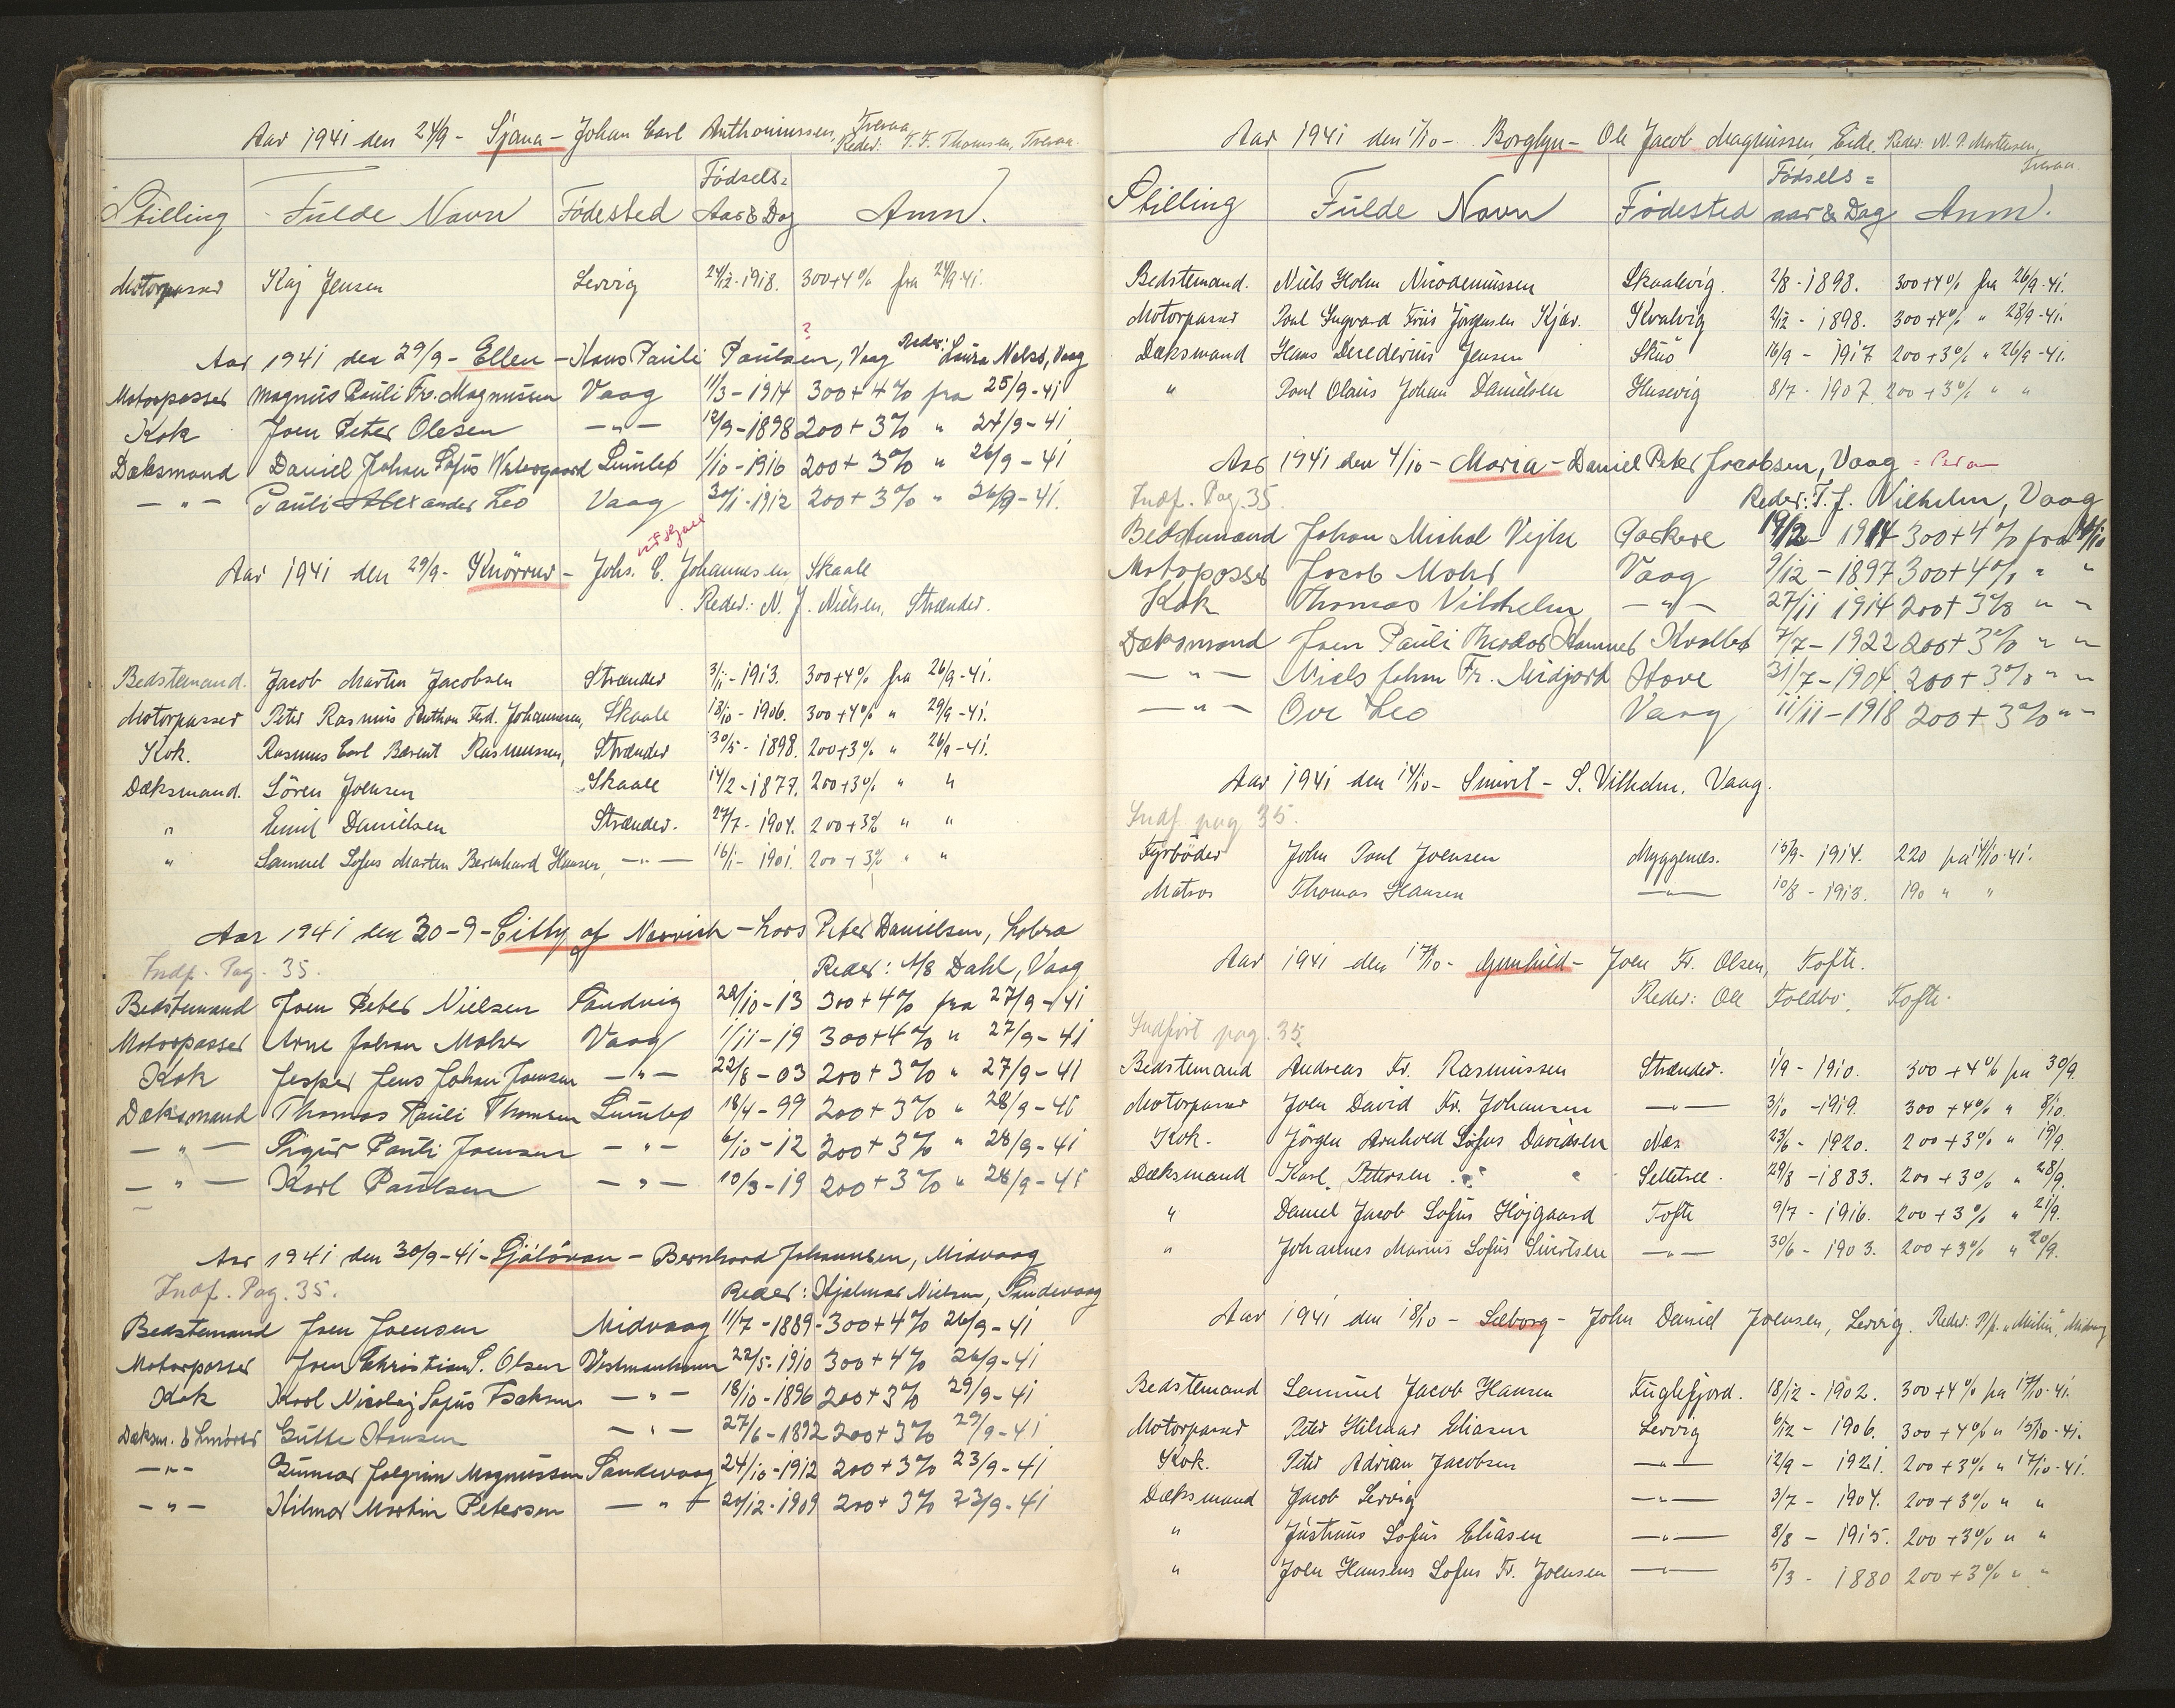 Aar 1941 den 24/9 - Sjana - Johan Carl Anthoniussen, Tveraa
Reder: T. F. Thomsen, Tveraa.
Stilling Fulde Navn Fødested Fødsels= Aar & Dag Anm.
Motorpasser Kaj Jensen Lervig 24/12-1918. 300+4% fra 24/9-41.
?
Aar 1941 den 29/9 - Ellen - Hans Pauli Paulsen, Vaag Reder: Laura Nolsø, Vaag
Motorpasser Magnus Pauli Fr. Magnussen Vaag 11/3-1914 300+4% fra 25/9-41
Kok Joen Peter Olesen -"- 12/9-1898 200+3% " 27/9-41
Dæksmand Daniel Johan Sofus Vestergaard Lumbø 1/10-1916 200+3% " 26/9-41
-"- Pauli Alexander Leo Vaag 30/1-1912 200+3% " 26/9-41.
Aar 1941 den 29/9 - Knørrur - Johs. C. Johannesen, Skaale
Reder: N. J. Nielsen, Strænder.
Bedstemand. Jacob Martin Jacobsen Strænder 3/11-1913. 300+4% fra 26/9-41.
Motorpasser Peter Rasmus Anthon Ferd. Johannesen, Skaale 18/10-1906. 300+4% " 29/9-41.
Kok. Rasmus Carl Barent Rasmussen, Strænder 30/5-1898. 200+3% " 26/9-41.
Dæksmand. Sören Joensen Skaale 14/2-1877. 200+3% " "
" Emil Danielsen Strænder. 27/7-1904. 200+3% " "
" Samuel Sofus Marten Bernhard Hansen, -"- 16/1-1901. 200+3% " "
Aar 1941 den 30-9 - Citty of Norvich - Lars Peter Danielsen, Lobra
Indf. Pag. 35. Reder: A/S Dahl, Vaag
Bedstemand Joen Peter Nielsen Sandvig 28/10-13 300+4% fra 27/9-41
Motorpasser Arne Johan Moher Vaag 1/11-19 300+4% " 27/9-41
Kok Jesper Jens Johan Joensen -"- 22/8-03 200+3% " 27/9-41
Dæksmand Thomas Pauli Thomsen Lumbø 18/4-99 200+3% " 28/9-41
-"- Sigur Pauli Joensen -"- 6/10-12 200+3% " 28/9-41
-"- Karl Paulsen -"- 10/3-19 200+3% " 28/9-41
Aar 1941 den 30/9-41 - Sjólóvan - Bernhard Johannesen, Midvaag
Indf. Pag. 35. Reder: Hjalmar Nielsen, Sandevaag
Bedstemand Joen Joensen Midvaag 11/7-1889 - 300+4% 26/9-41
Motorpasser Joen Christian S. Olsen Vestmanhavn 22/5-1910 300+4% 26/9-41
Kok Karl Nicolaj Sofus Isaksen -"- 18/10-1896 200+3% 29/9-41
Dæksm. & Smører Gutte Hansen -"- 27/6-1892 200+3% 29/9-41
-"- Gunnar Jalgrim Magnussen Sandevaag 24/10-1912 200+3% 23/9-41
-"- Hilmar Martin Petersen -"- 20/12-1909 200+3% 23/9-41
Aar 1941 den 1/10 - Borglyn - Ole Jacob Magnussen, Eide. Reder: N. P. Mortensen, Tveraa.
Stilling Fulde Navn Fødested Fødsels= aar & Dag Anm.
Bedstemand. Niels Holm Nicodemussen Skaalevig. 2/8-1898. 300+4% fra 26/9-41.
Motorpasser Poul Ingvard Friis Jørgensen Kjær. Kvalvig 2/12-1898. 300+4% " 28/9-41.
Dæksmand Hans Diederius Jensen Skuö 16/9-1917 200+3% " 26/9-41.
" Poul Olaus Johan Danielsen Husevig 8/7-1907 200+3% " "
Aar 1941 den 4/10 - Maria - Daniel Peter Jacobsen, Vaag
Indf. Pag. 35. Reder: T. J. Vilhelm, Vaag
Bedstemand Johan Michal Vejhe Porkere 19/2-1914 300+4% fra
Motorpasser Jacob Mohr Vaag 9/12-1897 300+4% " "
Kok Thomas Vilhelm -"- 27/11 1914 200+3% " "
Dæksmand Joen Pauli Theodor Hammer Kvalbø 7/7-1922 200+3% " "
-"- Niels Johan Fr. Midjord Hove 31/7-1904 200+3% " "
-"- Ove Leo Vaag 11/11-1918 200+3% " "
Aar 1941 den 14/10 - Smiril - S. Vilhelm, Vaag.
Indf pag 35.
Fyrbøder John Poul Joensen Myggenæs. 15/9-1914. 220 fra 14/10-41.
Matros Thomas Hansen -"- 10/8-1913. 190 " "
Aar 1941 den 17/10 - Gunhild - Joen Fr. Olsen, Tofte.
Reder: Ole Toldbo, Tofte.
Indført pag. 35.
Bedstemand Andreas Fr. Rasmussen Strænder. 1/9-1910. 300+4% fra 30/9.
Motorpasser Joen David Fr. Johansen -"- 3/10-1919. 300+4% " 8/10.
Kok. Jörgen Arnhold Sofus Davidsen Næs 23/6-1920. 200+3% " 19/9.
Dæksmand Karl Petersen Selletræ. 29/8-1883. 200+3% " 28/9.
" Daniel Jacob Sofus Højgaard Tofte 9/7-1916. 200+3% " 21/9.
" Johannes Marius Sofus Sivertsen -"- 30/6-1903. 200+3% " 20/9.
Aar 1941 den 18/10 - Sæborg - John Daniel Joensen, Lervig. Reder: P/f. "Milin",
Bedstemand Samuel Jacob Hansen Fuglefjord. 18/12-1902. 300+4% fra 17/10-41.
Motorpasser Peter Hilmar Eliasen Lervig 6/12-1906. 300+4% " 15/10-41.
Kok. Peter Adrian Jacobsen -"- 12/9-1921. 200+3% " 17/10-41.
Dæksmand Jacob Lervig -"- 3/7-1904. 200+3% " "
" Justinus Sofus Eliasen -"- 8/8-1915. 200+3% " "
" Joen Hansens Sofus Fr. Joensen -"- 5/3-1880 200+3% " "